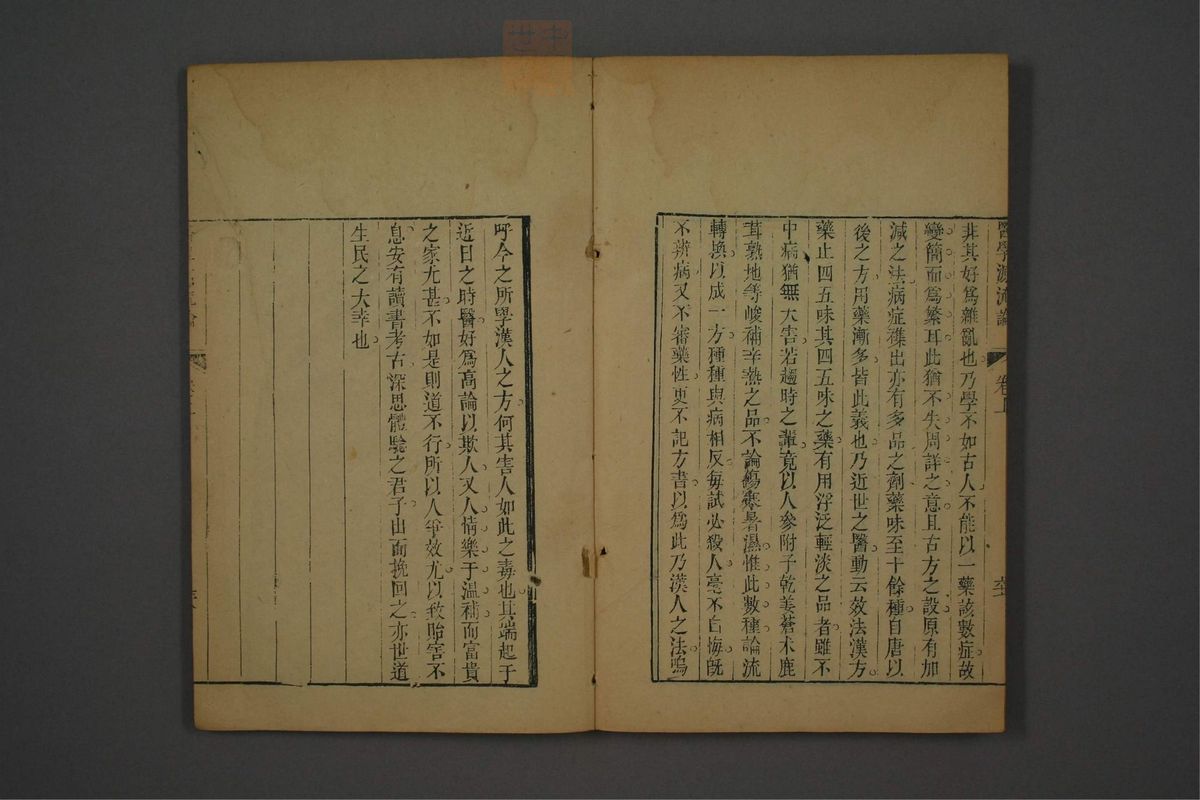 醫學源流論 卷上
非其好爲雜亂也乃學不如古人不能以一藥該數症故
變簡而爲繁耳此猶不失周詳之意且古方之設原有加
減之法病症雜出亦有多品之劑藥味至十餘種自唐以
後之方用藥漸多皆此義也乃近世之醫動云效法漢方
藥止四五味其四五味之藥有用浮泛輕淡之品者雖不
中病猶無大害若趨時之輩竟以人參附子乾姜蒼术鹿
茸熟地等峻補辛熱之品不論傷寒暑濕惟此數種論流
轉換以成一方種種與病相反每試必殺人毫不自悔既
不辨病又不審藥性更不記方書以爲此乃漢人之法嗚
呼今之所學漢人之方何其害人如此之毒也其端起于
近日之時醫好爲高論以欺人又人情樂于溫補而富貴
之家尤甚不如是則道不行所以人爭效尤以致貽害不
息安有讀書考古深思體驗之君子出而挽回之亦世道
生民之大幸也